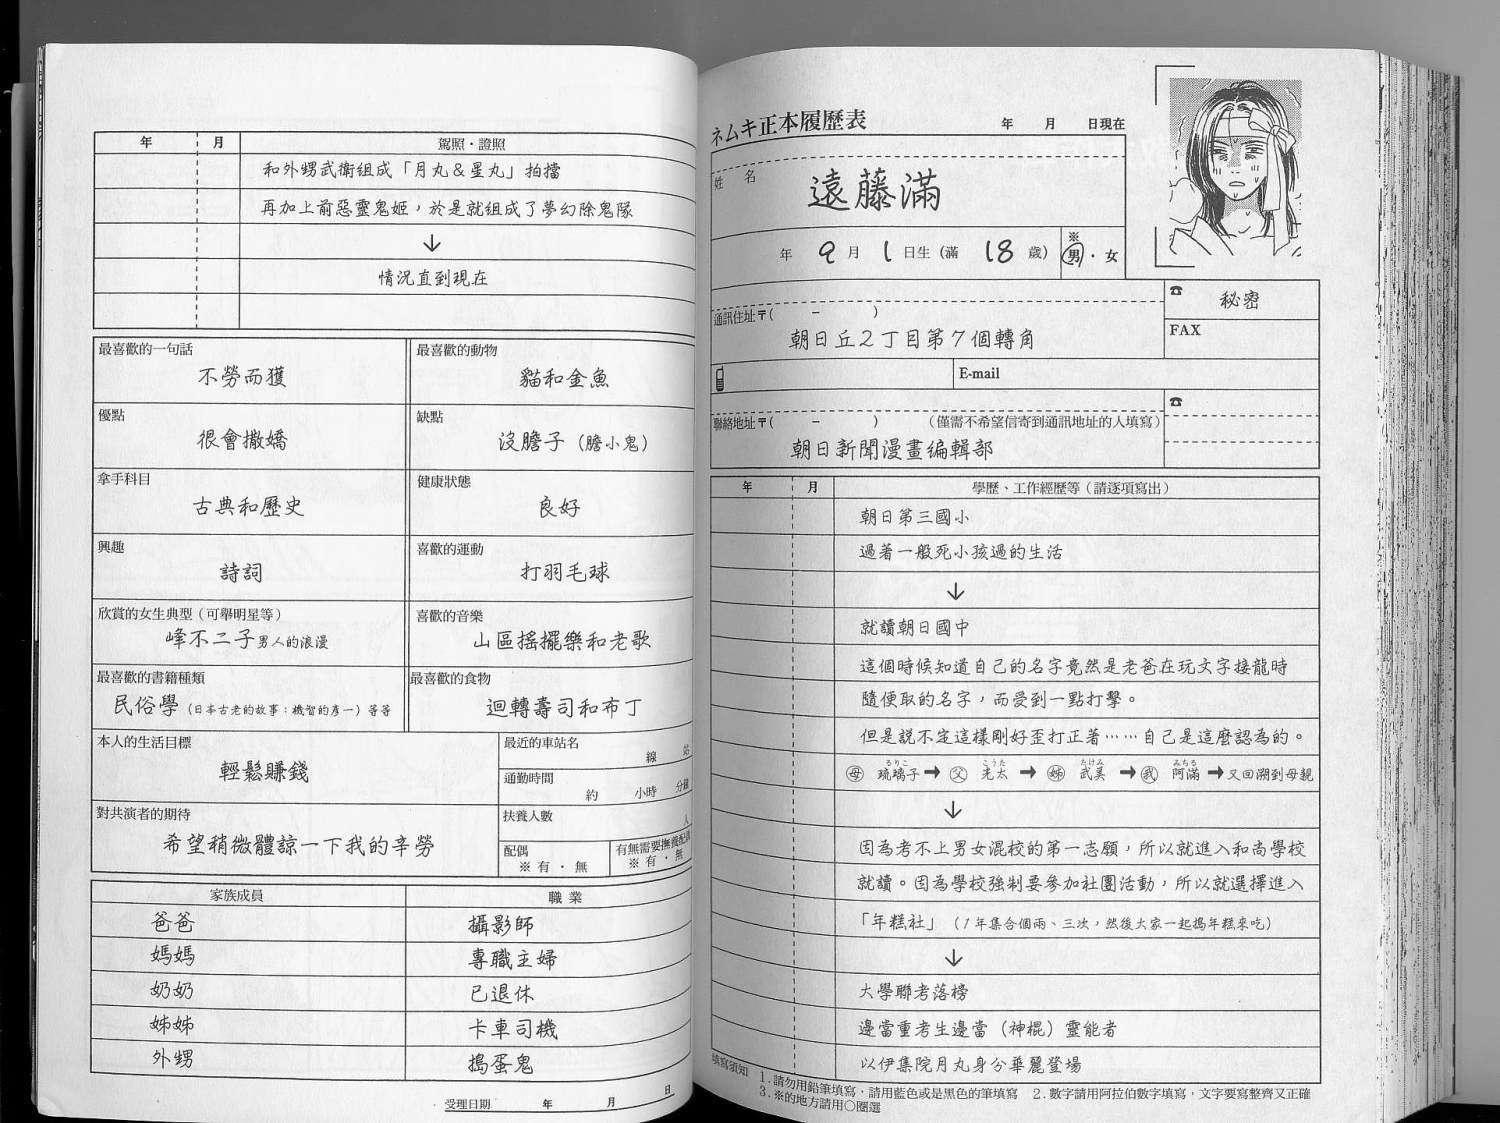 ネムキ正本履歷表
年 月 日現在
姓 名
遠藤滿
年 9 月 1 日生 (滿 18 歲)
※
男・女
通訊住址〒( － )
朝日丘2丁目第7個轉角
☎
秘密
FAX
E-mail
聯絡地址〒( － ) (僅需不希望信寄到通訊地址的人填寫)
朝日新聞漫畫編輯部
☎
年 月 學歷、工作經歷等 (請逐項寫出)
朝日第三國小
過著一般死小孩過的生活
↓
就讀朝日國中
這個時候知道自己的名字竟然是老爸在玩文字接龍時
隨便取的名字，而受到一點打擊。
但是說不定這樣剛好歪打正著……自己是這麼認為的。
るりこ こうた たけみ みちる
母 琉璃子→父 光太→姊 武美→我 阿滿→又回溯到母親
↓
因為考不上男女混校的第一志願，所以就進入和尚學校
就讀。因為學校強制要參加社團活動，所以就選擇進入
「年糕社」(1年集合個兩、三次，然後大家一起搗年糕來吃)
↓
大學聯考落榜
邊當重考生邊當（神棍）靈能者
以伊集院月丸身分華麗登場
填寫須知 1.請勿用鉛筆填寫，請用藍色或是黑色的筆填寫 2.數字請用阿拉伯數字填寫，文字要寫整齊又正確
3.※的地方請用○圈選
年 月 駕照・證照
和外甥武衛組成「月丸＆星丸」拍擋
再加上前惡靈鬼姬，於是就組成了夢幻除鬼隊
↓
情況直到現在
最喜歡的一句話
不勞而獲
最喜歡的動物
貓和金魚
優點
很會撒嬌
缺點
沒膽子（膽小鬼）
拿手科目
古典和歷史
健康狀態
良好
興趣
詩詞
喜歡的運動
打羽毛球
欣賞的女生典型（可舉明星等）
峰不二子男人的浪漫
喜歡的音樂
山區搖擺樂和老歌
最喜歡的書籍種類
民俗學（日本古老的故事：機智的彥一）等等
最喜歡的食物
迴轉壽司和布丁
本人的生活目標
輕鬆賺錢
最近的車站名
線 站
通勤時間
約 小時 分鐘
對共演者的期待
希望稍微體諒一下我的辛勞
扶養人數
人
配偶
※有・無
有無需要撫養配偶
※有・無
家族成員 職業
爸爸 攝影師
媽媽 專職主婦
奶奶 已退休
姊姊 卡車司機
外甥 搗蛋鬼
受理日期 年 月 日